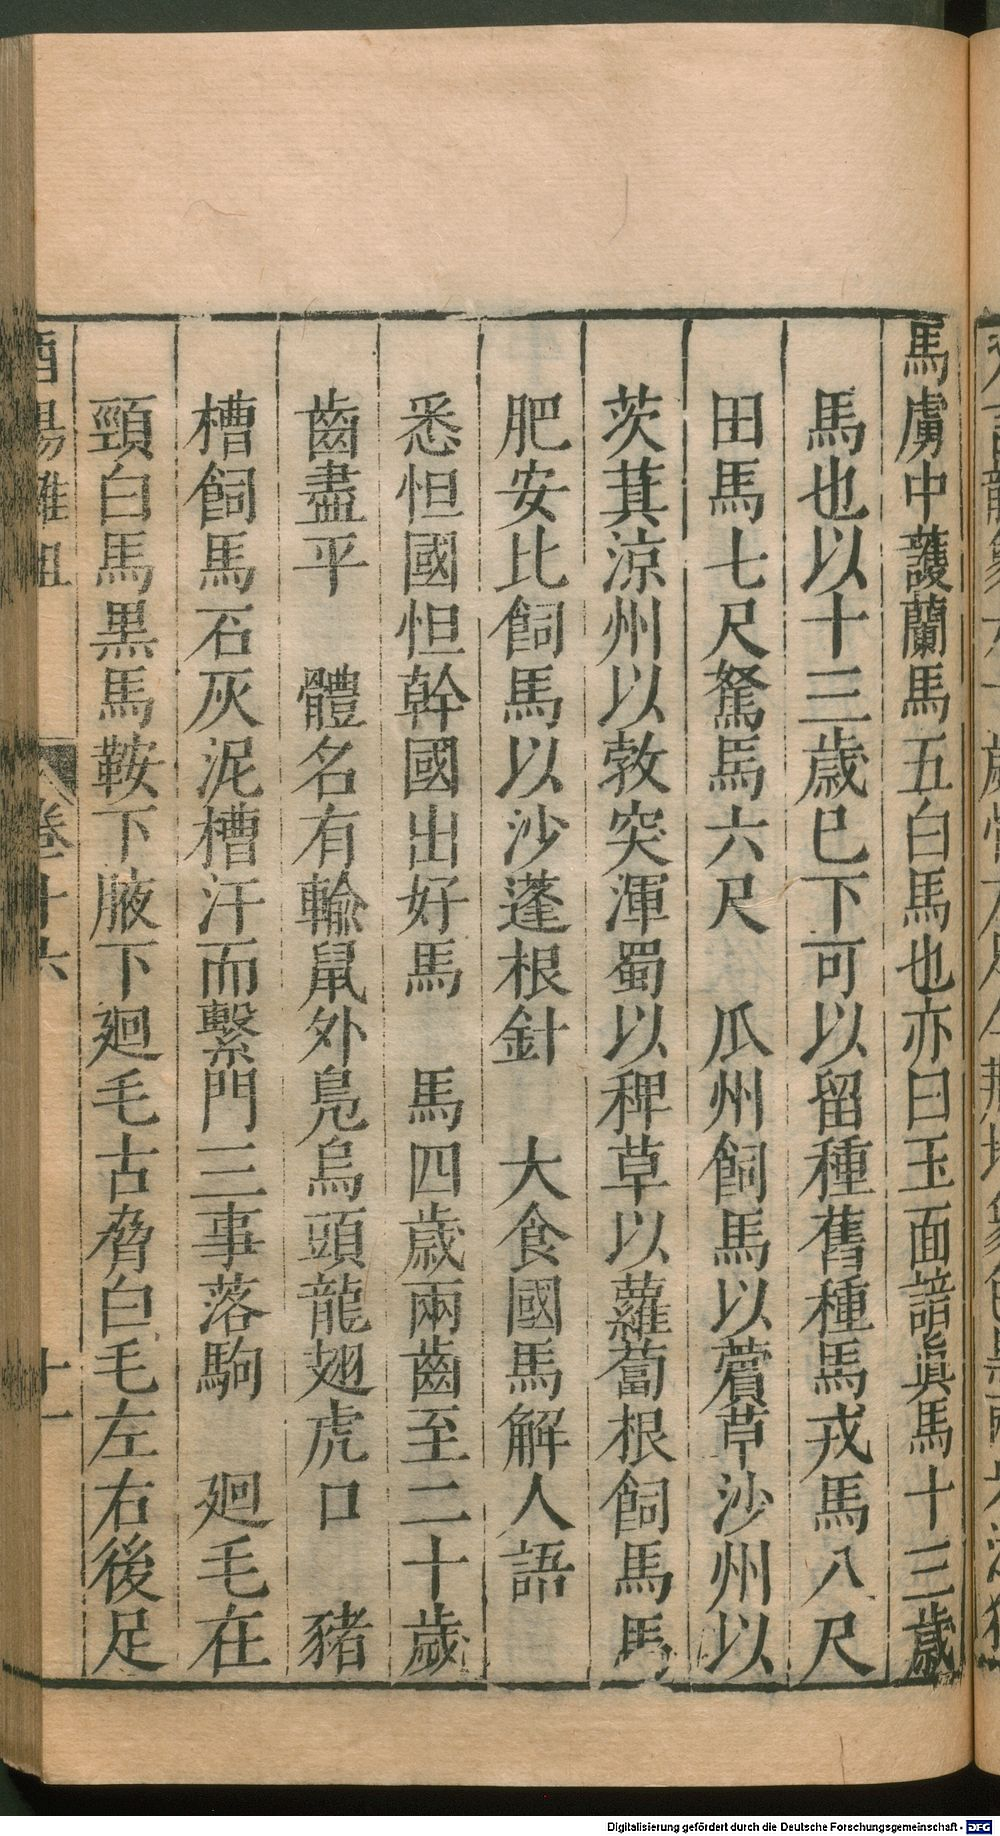 馬虜中護蘭馬五白馬也亦曰玉面諳眞馬十三歲
馬也以十三歲巳下可以留種舊種馬戎馬八尺
田馬七尺駑馬六尺　瓜州飼馬以薲草沙州以
茨萁涼州以敦突渾蜀以稗草以蘿蔔根飼馬馬
肥安比飼馬以沙蓬根針　大食國馬解人語
悉怛國怛幹國出好馬　馬四歲兩齒至二十歲
齒盡平　體名有輸鼠外鳧烏頭龍翅虎口　豬
槽飼馬石灰泥槽汗而繫門三事落駒　廻毛在
頸白馬黒馬鞍下腋下廻毛古脅白毛左右後足
酉陽雜俎　卷十六　十一
Digitalisierung gefördert durch die Deutsche Forschungsgemeinschaft - DFG